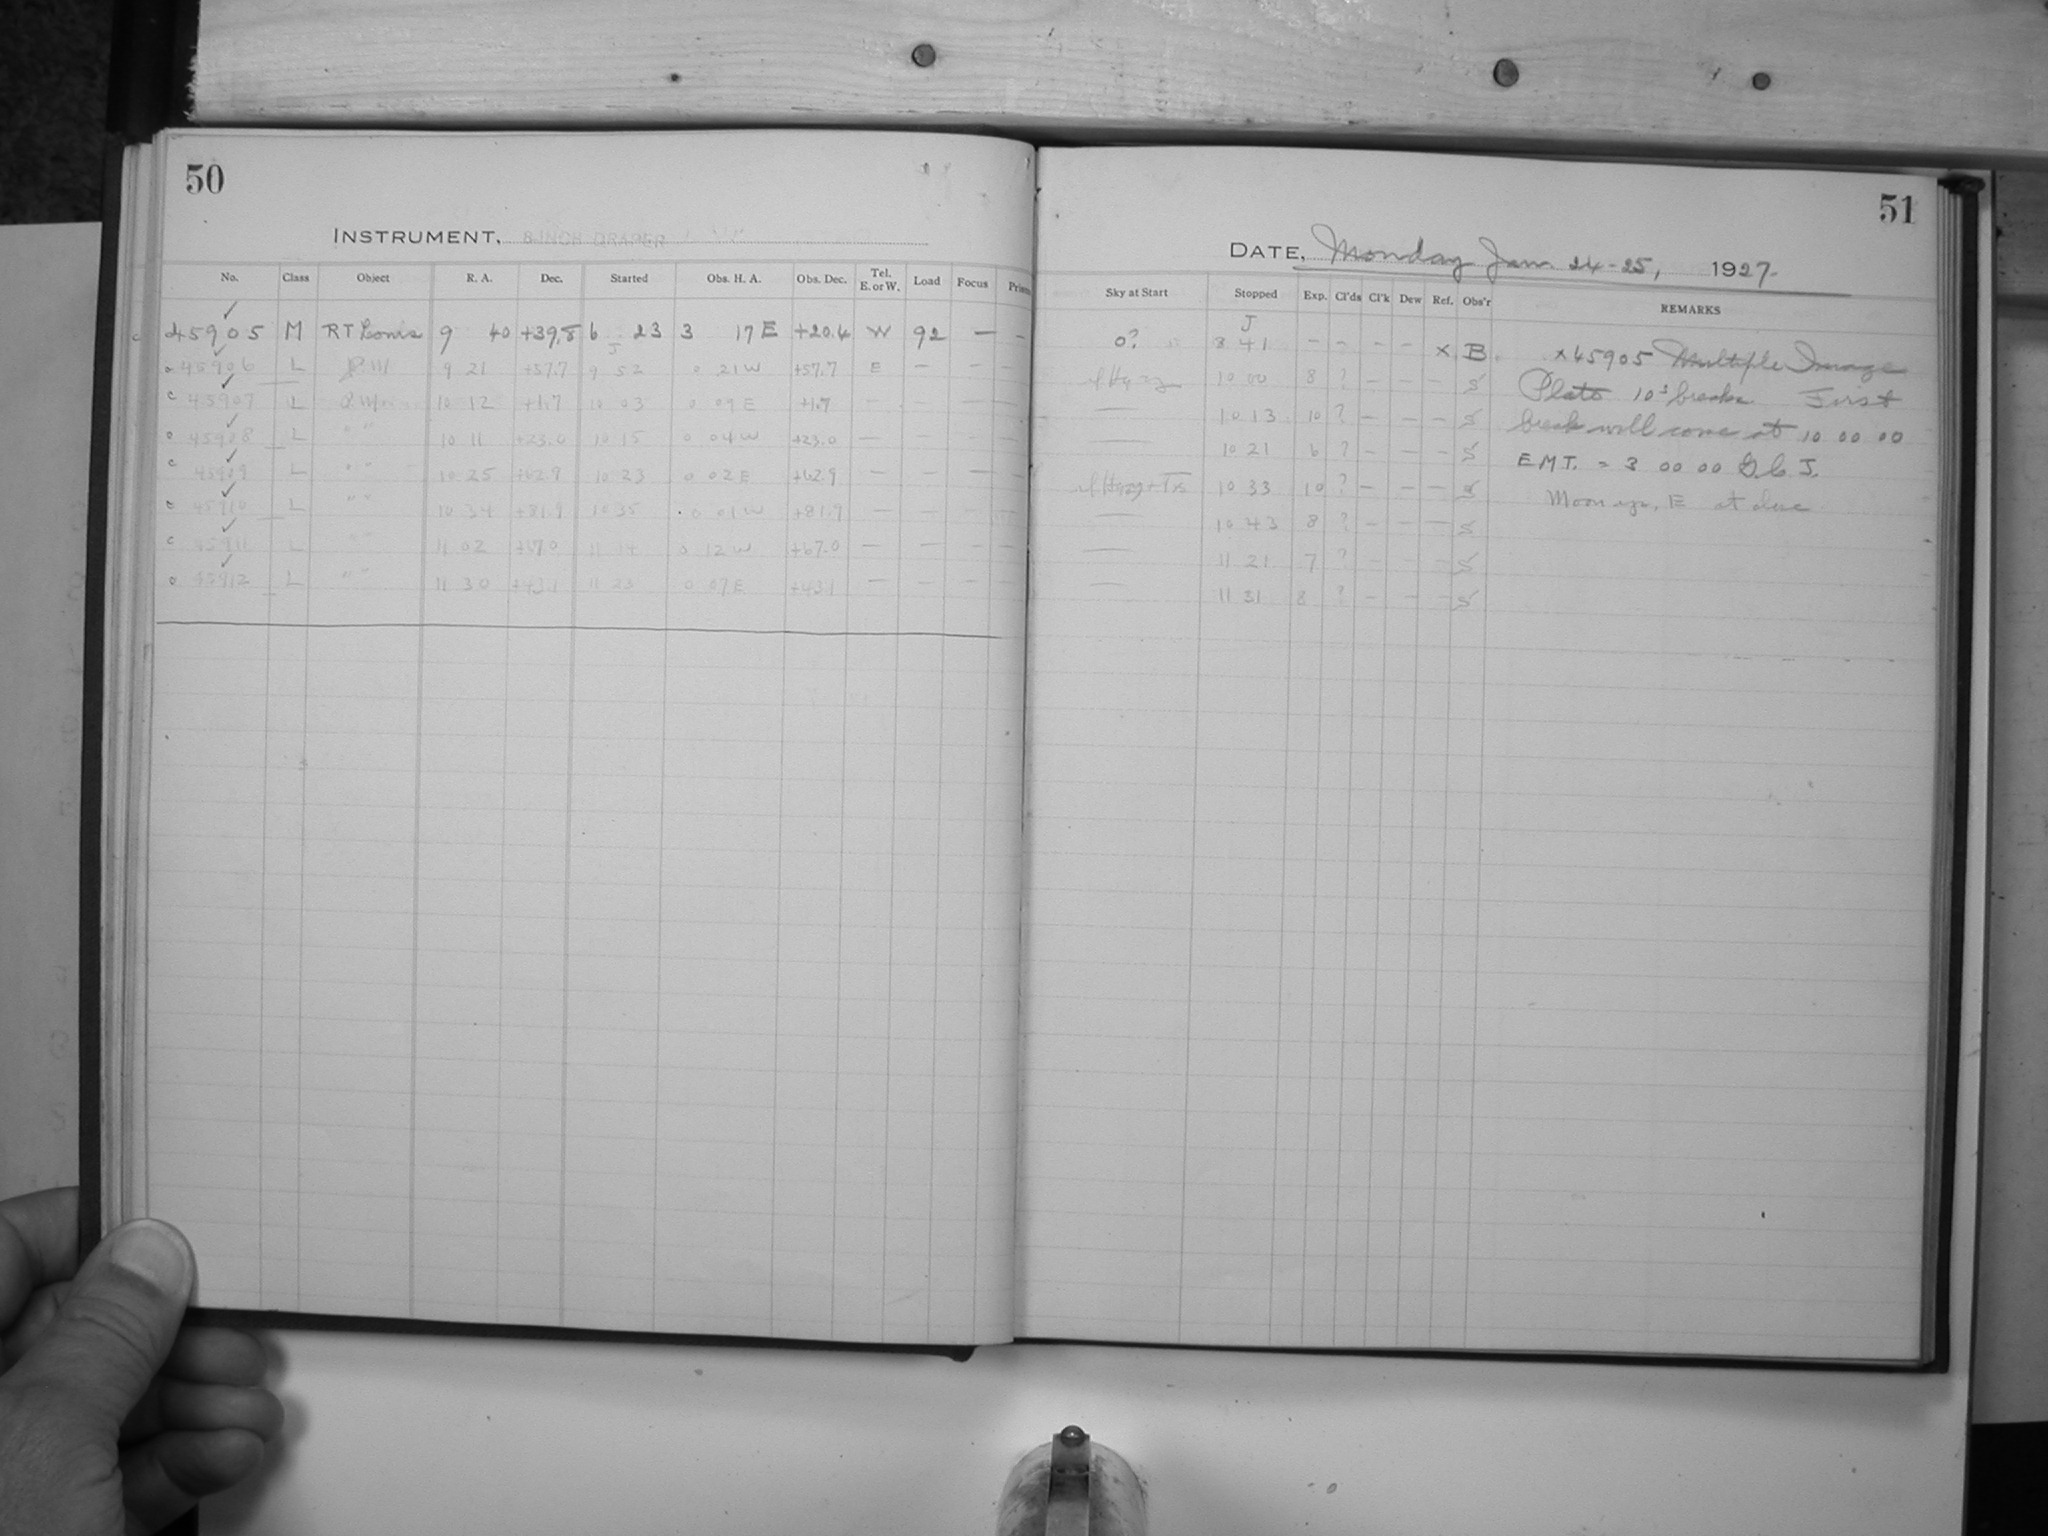 50
INSTRUMENT, 8 INCH DRAPER
No. Class Object R. A. Dec. Started Obs. H. A. Obs. Dec. Tel. E. or W. Load Focus Prism
c 45905 M RT Leonis 9 40 +39,8 6 23 3 17 E +20.4 W 92 — –
45906 L 9 21 +57.7 9 52 0 21 W +57.7 E — — –
c 45907 L 10 12 +1.7 10 03 0 09 E +1.7 — — —
45908 L " " 10 11 +23.0 10 15 0 04 W +23.0 — — – —
c 45909 L " " 10 25 +62.9 10 23 0 02 E +62.9 — — — –
45910 L " " 10 34 +81.9 10 35 0 01 W +81.9 — — –
c 45911 L " " 11 02 +67.0 11 14 0 12 W +67.0 — — – –
45912 L " " 11 30 +43.1 11 23 0 07 E +43.1 — – – –
51
DATE, Monday Jan. 24-25, 1927.
Sky at Start Stopped Exp. Cl'ds Cl'k Dew Ref. Obs'r REMARKS
J
0? 8 41 – – – – x B. x 45905 Multiple Image
10 00 8 ? – – – S Plate 10s breaks First
— 10 13 10 ? – – – S break will come at 10 00 00
— 10 21 6 ? – – – S E.M.T. = 3 00 00 G.C.T.
10 33 10 ? – – – S Moon E at
— 10 43 8 ? – – – S
— 11 21 7 ? – – – S
— 11 31 8 ? – – – S